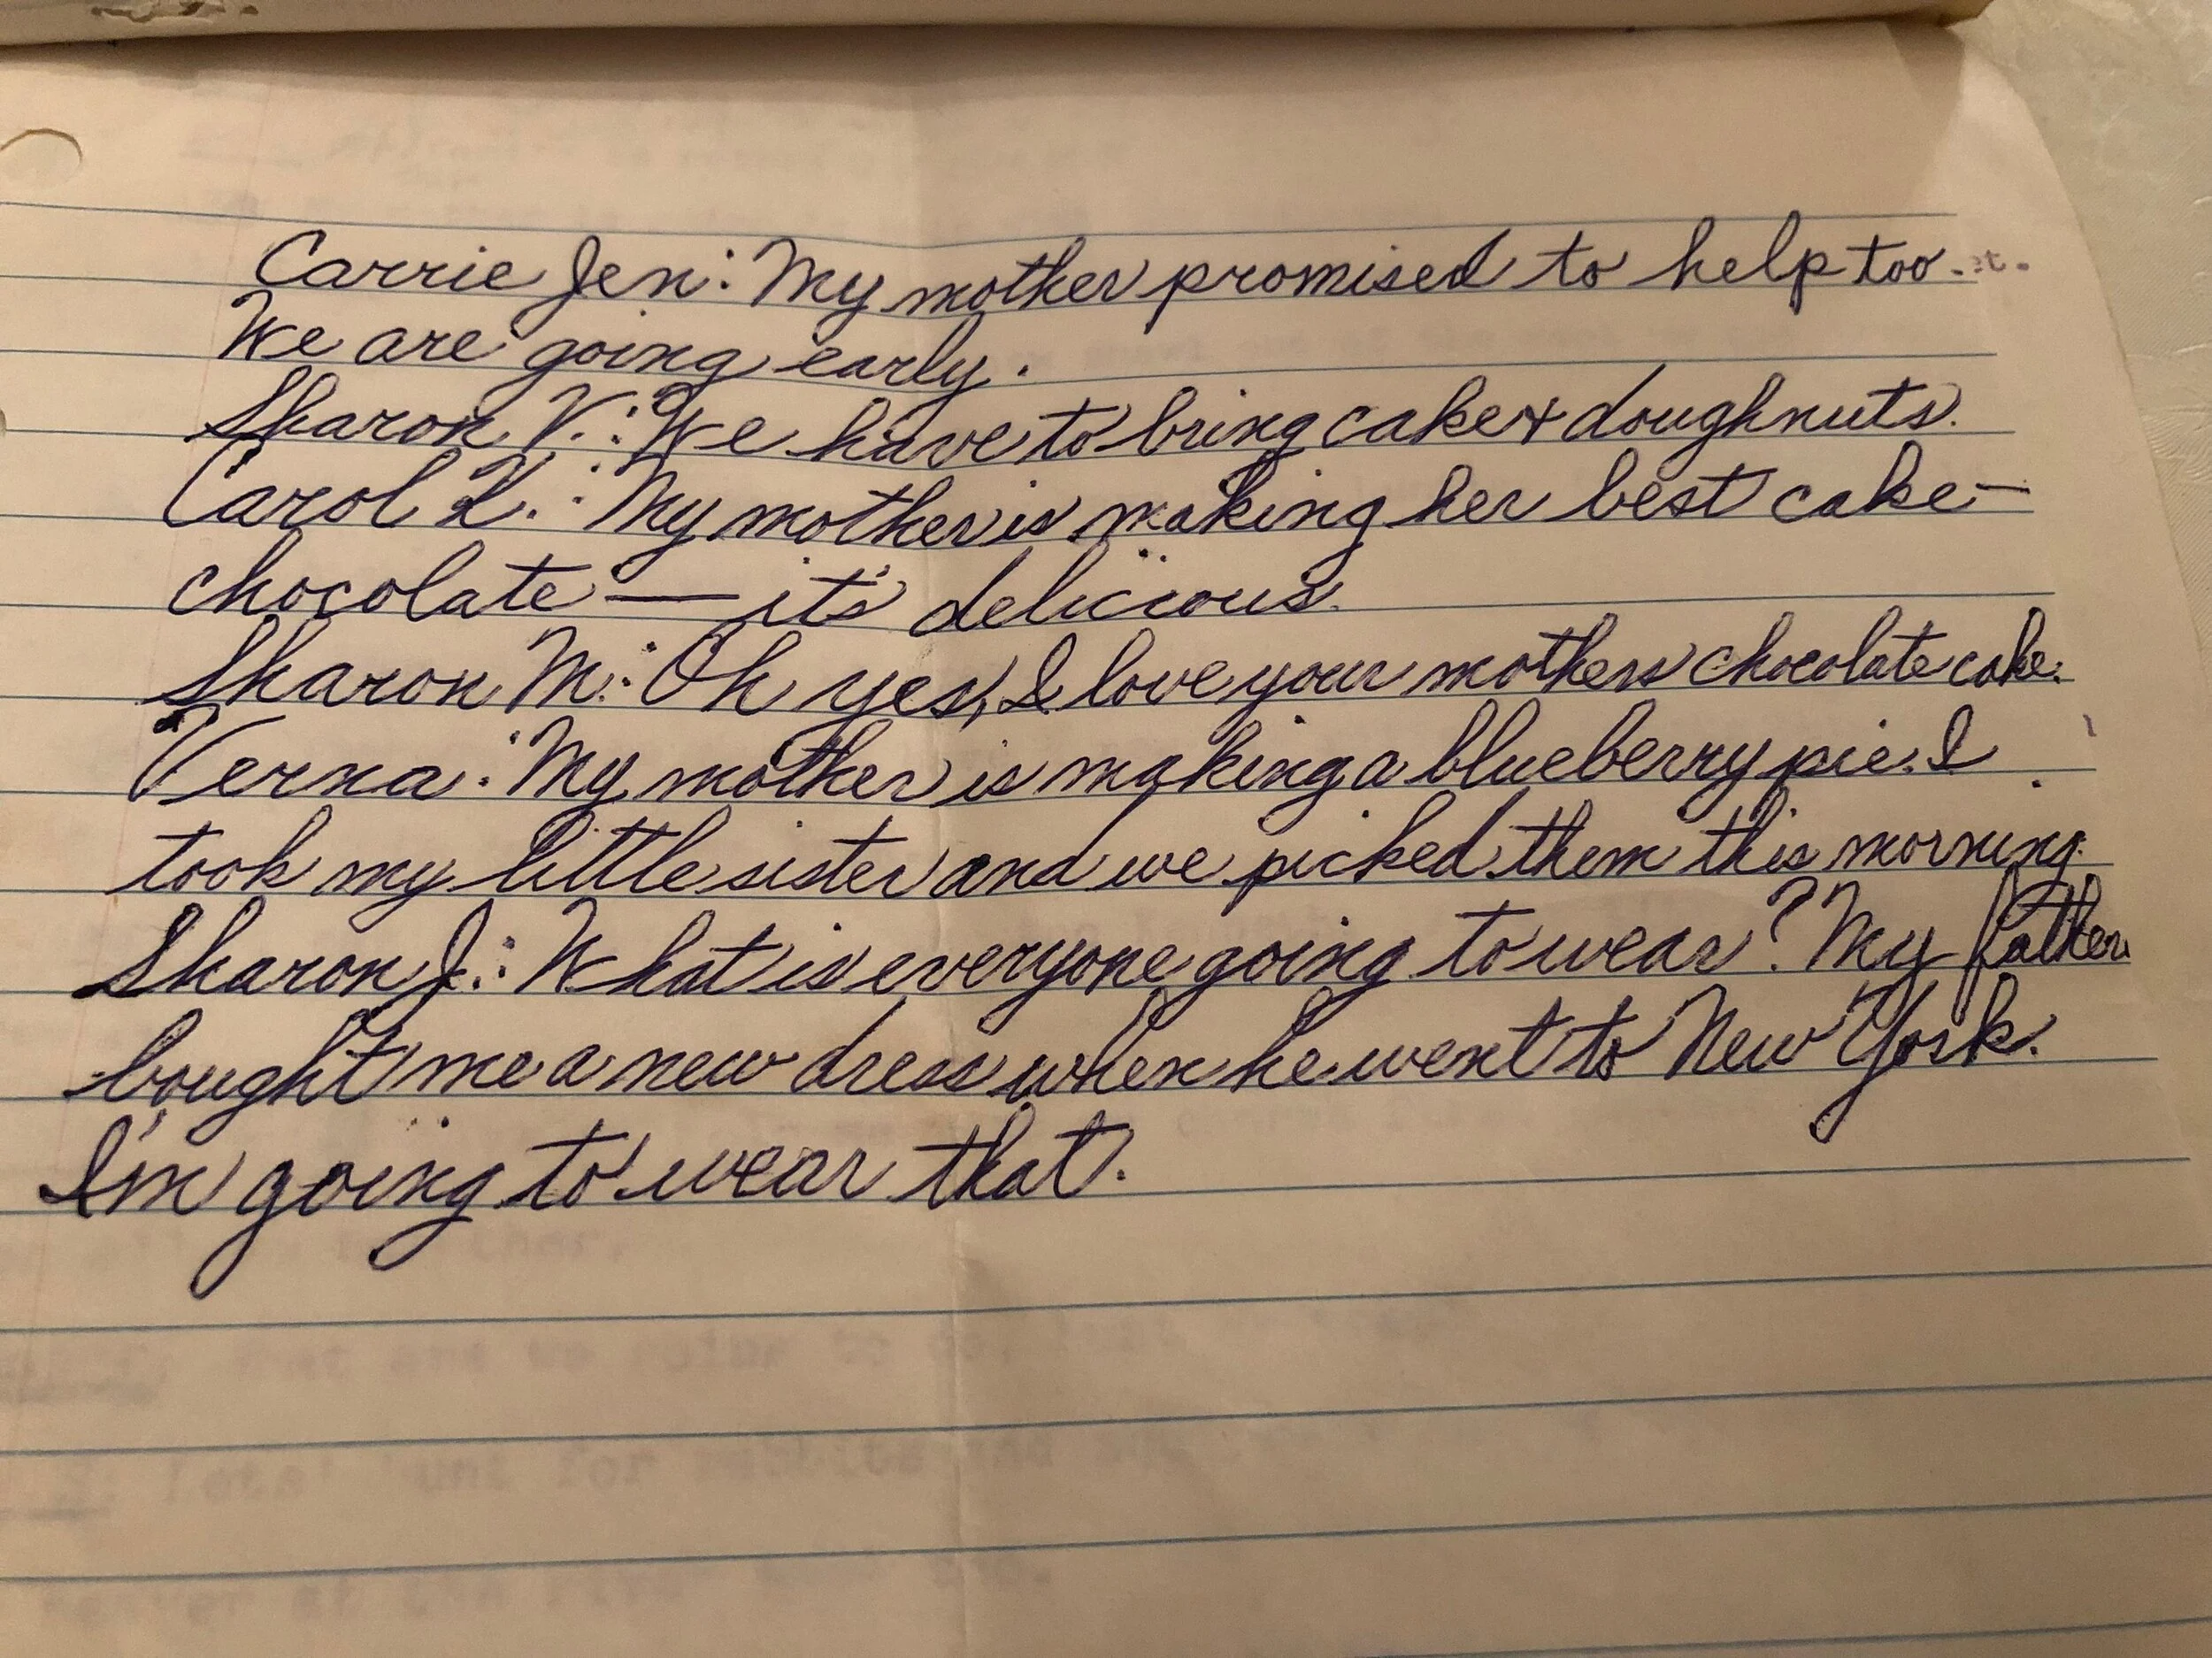 Carrie Jen: My mother promised to help too.
We are going early.
Sharon V.: We have to bring cake & doughnuts.
Carol K.: My mother is making her best cake—
chocolate — it's delicious.
Sharon M.: Oh yes, I love your mothers chocolate cake.
Verna: My mother is making a blueberry pie. I
took my little sister and we picked them this morning.
Sharon J.: What is everyone going to wear? My father
bought me a new dress when he went to New York.
I'm going to wear that.